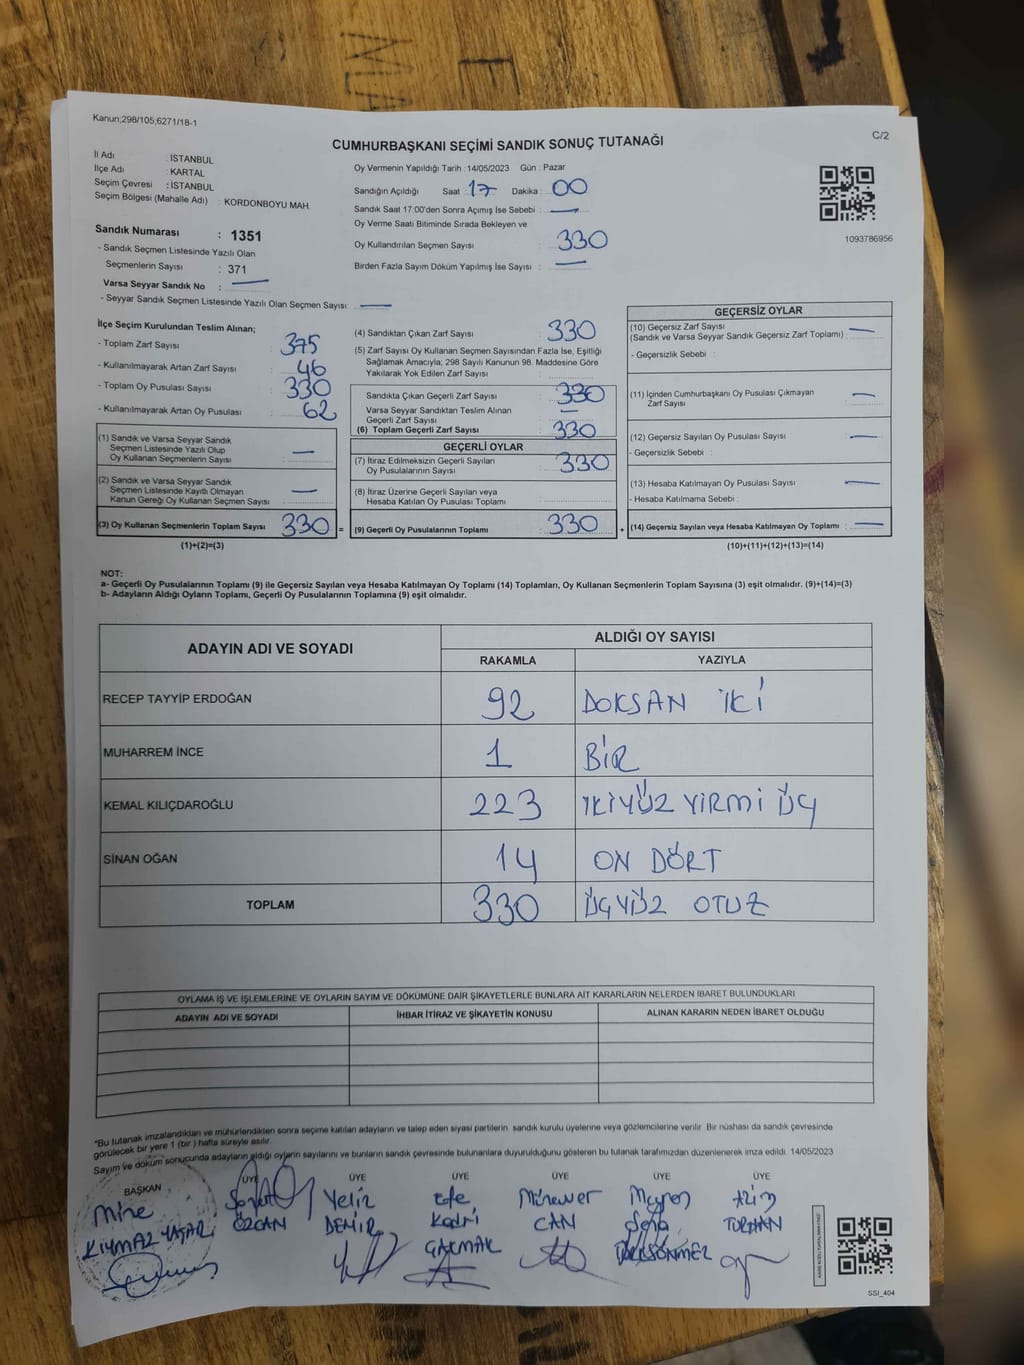 Kanun;298/105;6271/18-1
C/2
CUMHURBAŞKANI SEÇİMİ SANDIK SONUÇ TUTANAĞI
İl Adı : İSTANBUL
İlçe Adı : KARTAL
Seçim Çevresi : İSTANBUL
Seçim Bölgesi (Mahalle Adı) : KORDONBOYU MAH.
Oy Vermenin Yapıldığı Tarih : 14/05/2023 Gün : Pazar
Sandığın Açıldığı Saat : 17 Dakika : 00
Sandık Saat 17:00'den Sonra Açımış İse Sebebi : —
Oy Verme Saati Bitiminde Sırada Bekleyen ve
Oy Kullandırılan Seçmen Sayısı : 330
Birden Fazla Sayım Döküm Yapılmış İse Sayısı : —
1093786956
Sandık Numarası : 1351
- Sandık Seçmen Listesinde Yazılı Olan
Seçmenlerin Sayısı : 371
Varsa Seyyar Sandık No : —
- Seyyar Sandık Seçmen Listesinde Yazılı Olan Seçmen Sayısı: —
İlçe Seçim Kurulundan Teslim Alınan;
- Toplam Zarf Sayısı : 375
- Kullanılmayarak Artan Zarf Sayısı : 46
- Toplam Oy Pusulası Sayısı : 330
- Kullanılmayarak Artan Oy Pusulası : 62
(1) Sandık ve Varsa Seyyar Sandık
Seçmen Listesinde Yazılı Olup
Oy Kullanan Seçmenlerin Sayısı : —
(2) Sandık ve Varsa Seyyar Sandık
Seçmen Listesinde Kayıtlı Olmayan
Kanun Gereği Oy Kullanan Seçmen Sayısı : —
(3) Oy Kullanan Seçmenlerin Toplam Sayısı : 330 =
(1)+(2)=(3)
(4) Sandıktan Çıkan Zarf Sayısı : 330
(5) Zarf Sayısı Oy Kullanan Seçmen Sayısından Fazla İse, Eşitliği
Sağlamak Amacıyla; 298 Sayılı Kanunun 98. Maddesine Göre
Yakılarak Yok Edilen Zarf Sayısı :
Sandıkta Çıkan Geçerli Zarf Sayısı : 330
Varsa Seyyar Sandıktan Teslim Alınan
Geçerli Zarf Sayısı : —
(6) Toplam Geçerli Zarf Sayısı : 330
GEÇERLİ OYLAR
(7) İtiraz Edilmeksizin Geçerli Sayılan
Oy Pusulalarının Sayısı : 330
(8) İtiraz Üzerine Geçerli Sayılan veya
Hesaba Katılan Oy Pusulası Toplamı :
(9) Geçerli Oy Pusulalarının Toplamı : 330 +
GEÇERSİZ OYLAR
(10) Geçersiz Zarf Sayısı
(Sandık ve Varsa Seyyar Sandık Geçersiz Zarf Toplamı) : —
- Geçersizlik Sebebi :
(11) İçinden Cumhurbaşkanı Oy Pusulası Çıkmayan
Zarf Sayısı : —
(12) Geçersiz Sayılan Oy Pusulası Sayısı : —
- Geçersizlik Sebebi :
(13) Hesaba Katılmayan Oy Pusulası Sayısı : —
- Hesaba Katılmama Sebebi :
(14) Geçersiz Sayılan veya Hesaba Katılmayan Oy Toplamı : —
(10)+(11)+(12)+(13)=(14)
NOT:
a- Geçerli Oy Pusulalarının Toplamı (9) ile Geçersiz Sayılan veya Hesaba Katılmayan Oy Toplamı (14) Toplamları, Oy Kullanan Seçmenlerin Toplam Sayısına (3) eşit olmalıdır. (9)+(14)=(3)
b- Adayların Aldığı Oyların Toplamı, Geçerli Oy Pusulalarının Toplamına (9) eşit olmalıdır.
ADAYIN ADI VE SOYADI ALDIĞI OY SAYISI
RAKAMLA YAZIYLA
RECEP TAYYİP ERDOĞAN 92 DOKSAN İKİ
MUHARREM İNCE 1 BİR
KEMAL KILIÇDAROĞLU 223 İKİYÜZ YİRMİ ÜÇ
SİNAN OĞAN 14 ON DÖRT
TOPLAM 330 ÜÇYÜZ OTUZ
OYLAMA İŞ VE İŞLEMLERİNE VE OYLARIN SAYIM VE DÖKÜMÜNE DAİR ŞİKAYETLERLE BUNLARA AİT KARARLARIN NELERDEN İBARET BULUNDUKLARI
ADAYIN ADI VE SOYADI İHBAR İTİRAZ VE ŞİKAYETİN KONUSU ALINAN KARARIN NEDEN İBARET OLDUĞU
*Bu tutanak imzalandıktan ve mühürlendikten sonra seçime katılan adayların ve talep eden siyasi partilerin sandık kurulu üyelerine veya gözlemcilerine verilir. Bir nüshası da sandık çevresinde
görülecek bir yere 1 (bir ) hafta süreyle asılır.
Sayım ve döküm sonucunda adayların aldığı oyların sayılarını ve bunların sandık çevresinde bulunanlara duyurulduğunu gösteren bu tutanak tarafımızdan düzenlenerek imza edildi. 14/05/2023
BAŞKAN ÜYE ÜYE ÜYE ÜYE ÜYE ÜYE
Mine Yeliz Efe Münevver
KIYMAZ YAŞAR ÖZCAN DEMİR Kadri CAN Sena TURHAN
ÇAKMAK TÜRKSÖNMEZ
SSI_404